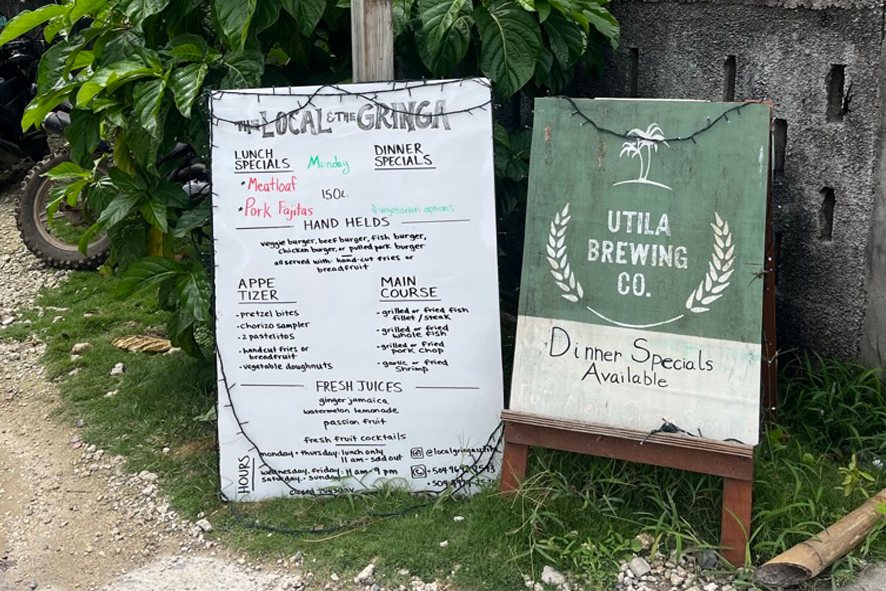 THE LOCAL & THE GRINGA
LUNCH SPECIALS
Monday
DINNER SPECIALS
• Meatloaf
150L.
• Pork Fajitas
vegetarian options
HAND HELDS
veggie burger, beef burger, fish burger,
chicken burger, or pulled pork burger
all served with: hand-cut fries or
breadfruit
APPE
TIZER
- pretzel bites
- chorizo sampler
- 2 pastelitos
- handcut fries or
breadfruit
- vegetable doughnuts
MAIN
COURSE
- grilled or fried fish
fillet / steak
- grilled or fried
whole fish
- grilled or fried
pork chop
- garlic or fried
shrimp
FRESH JUICES
ginger jamaica
watermelon lemonade
passion fruit
fresh fruit cocktails
HOURS
monday + thursday: lunch only
11 am - sold out
wednesday, friday,
saturday, sunday
11 am - 9 pm
closed tuesday
+504
+504
UTILA
BREWING
CO.
Dinner Specials
Available